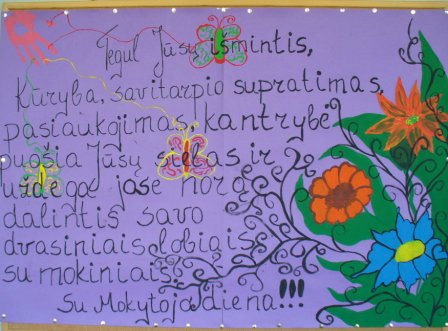 Tegul Jūsų išmintis,
Kūryba, savitarpio supratimas,
pasiaukojimas, kantrybė
puošia Jūsų sielas ir
uždega jose norą
dalintis savo
dvasiniais lobiais
su mokiniais.
Su Mokytojo diena!!!